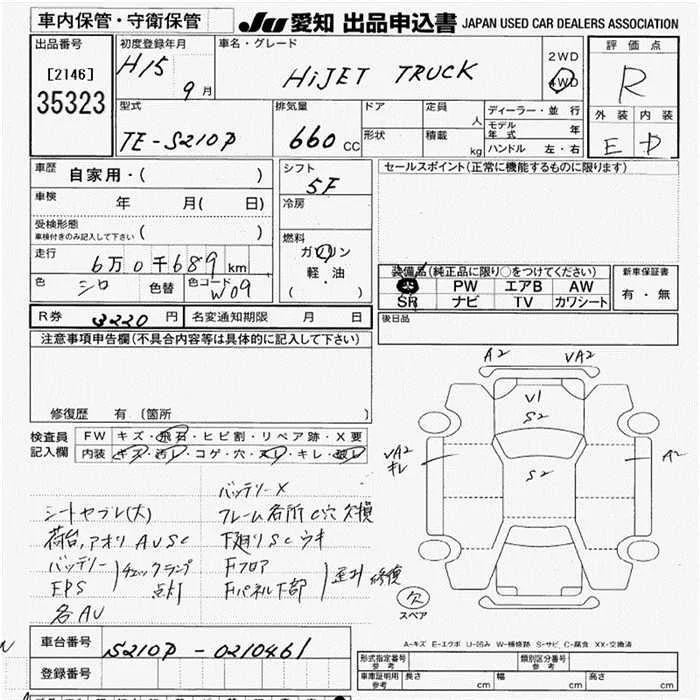 車内保管・守衛保管
JU 愛知 出品申込書 JAPAN USED CAR DEALERS ASSOCIATION
出品番号
[2146]
35323
初度登録年月
H15
9月
車名・グレード
HiJET TRUCK
2WD
4WD
評価点
R
外装 内装
E D
型式
TE-S210P
排気量
660 CC
ドア
形状
定員
人
積載
kg
ディーラー・並行
モデル年式
年
ハンドル 左・右
車歴
自家用・( )
車検
年 月( 日)
受検形態
車検付きのみ記入して下さい ( )
走行
6万0千689 km
色
シロ
色替
色コード
W09
シフト
5F
冷房
燃料
ガソリン
軽・油
( )
セールスポイント(正常に機能するものに限ります)
装備品(純正品に限り○をつけてください)
PW エアB AW
SR ナビ TV カワシート
新車保証書
有・無
後日品
R券 3220 円
名変通知期限 月 日
注意事項申告欄(不具合内容等は具体的に記入して下さい)
修復歴 有 (箇所 )
検査員
記入欄
FW キズ・飛石・ヒビ割・リペア跡・X要
内装 キズ・汚レ・コゲ・穴・スレ・キレ・破レ
バッテリーX
シートヤブレ(大)
フレーム各所C穴欠損
荷台,アオリAUSC
下廻りSCウキ
バッテリー
EPS
チェックランプ
点灯
Fフロア
Fパネル下部
歪ミ 修復
各AU
A2
UA2
V1
S2
S2
UA2
キレ
A2
欠
スペア
A-キズ E-エクボ U-凹み W-補修跡 S-サビ C-腐食 XX-交換済
車台番号
S210P-0210461
登録番号
形式指定番号
参考
類別区分番号
参考
車庫証明用
参考
長さ cm
幅 cm
高さ cm